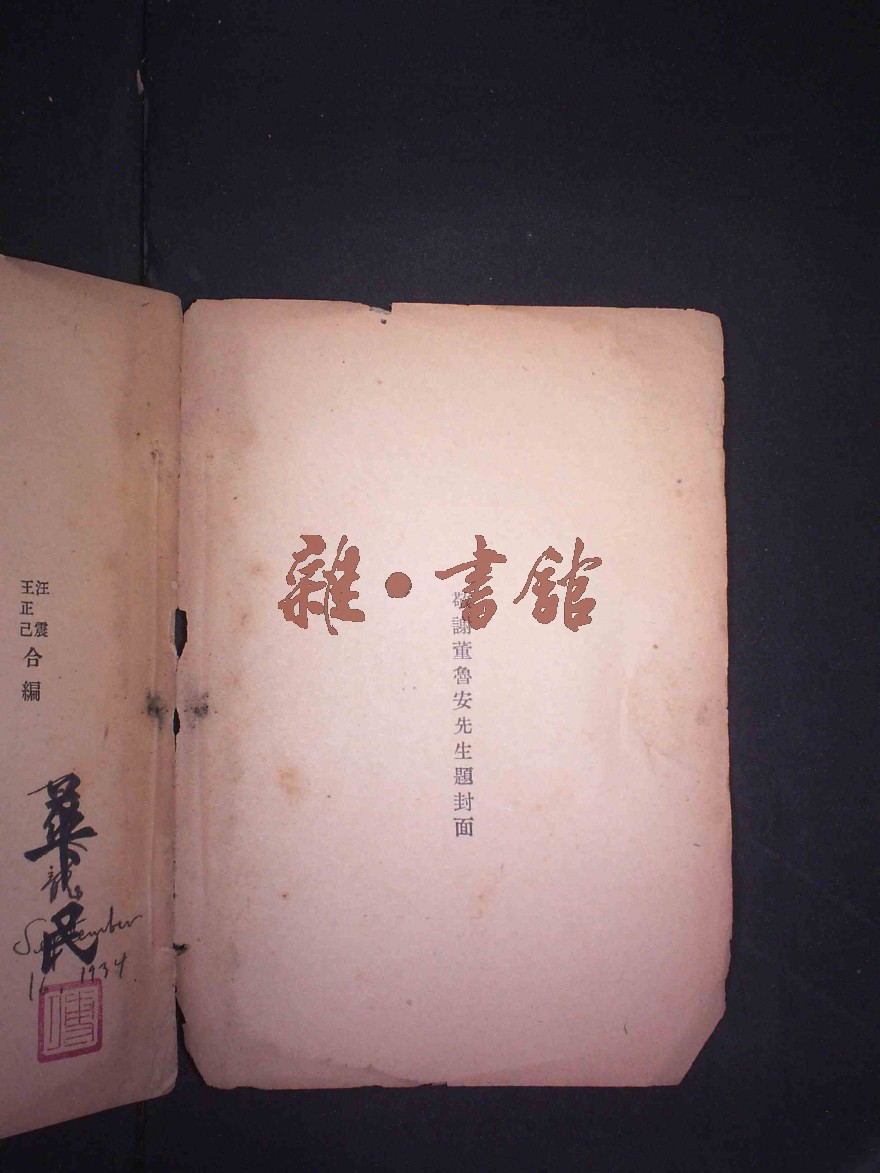 雜·書館
敬謝董魯安先生題封面
汪震
王正己
合編
民
September
16, 1934.